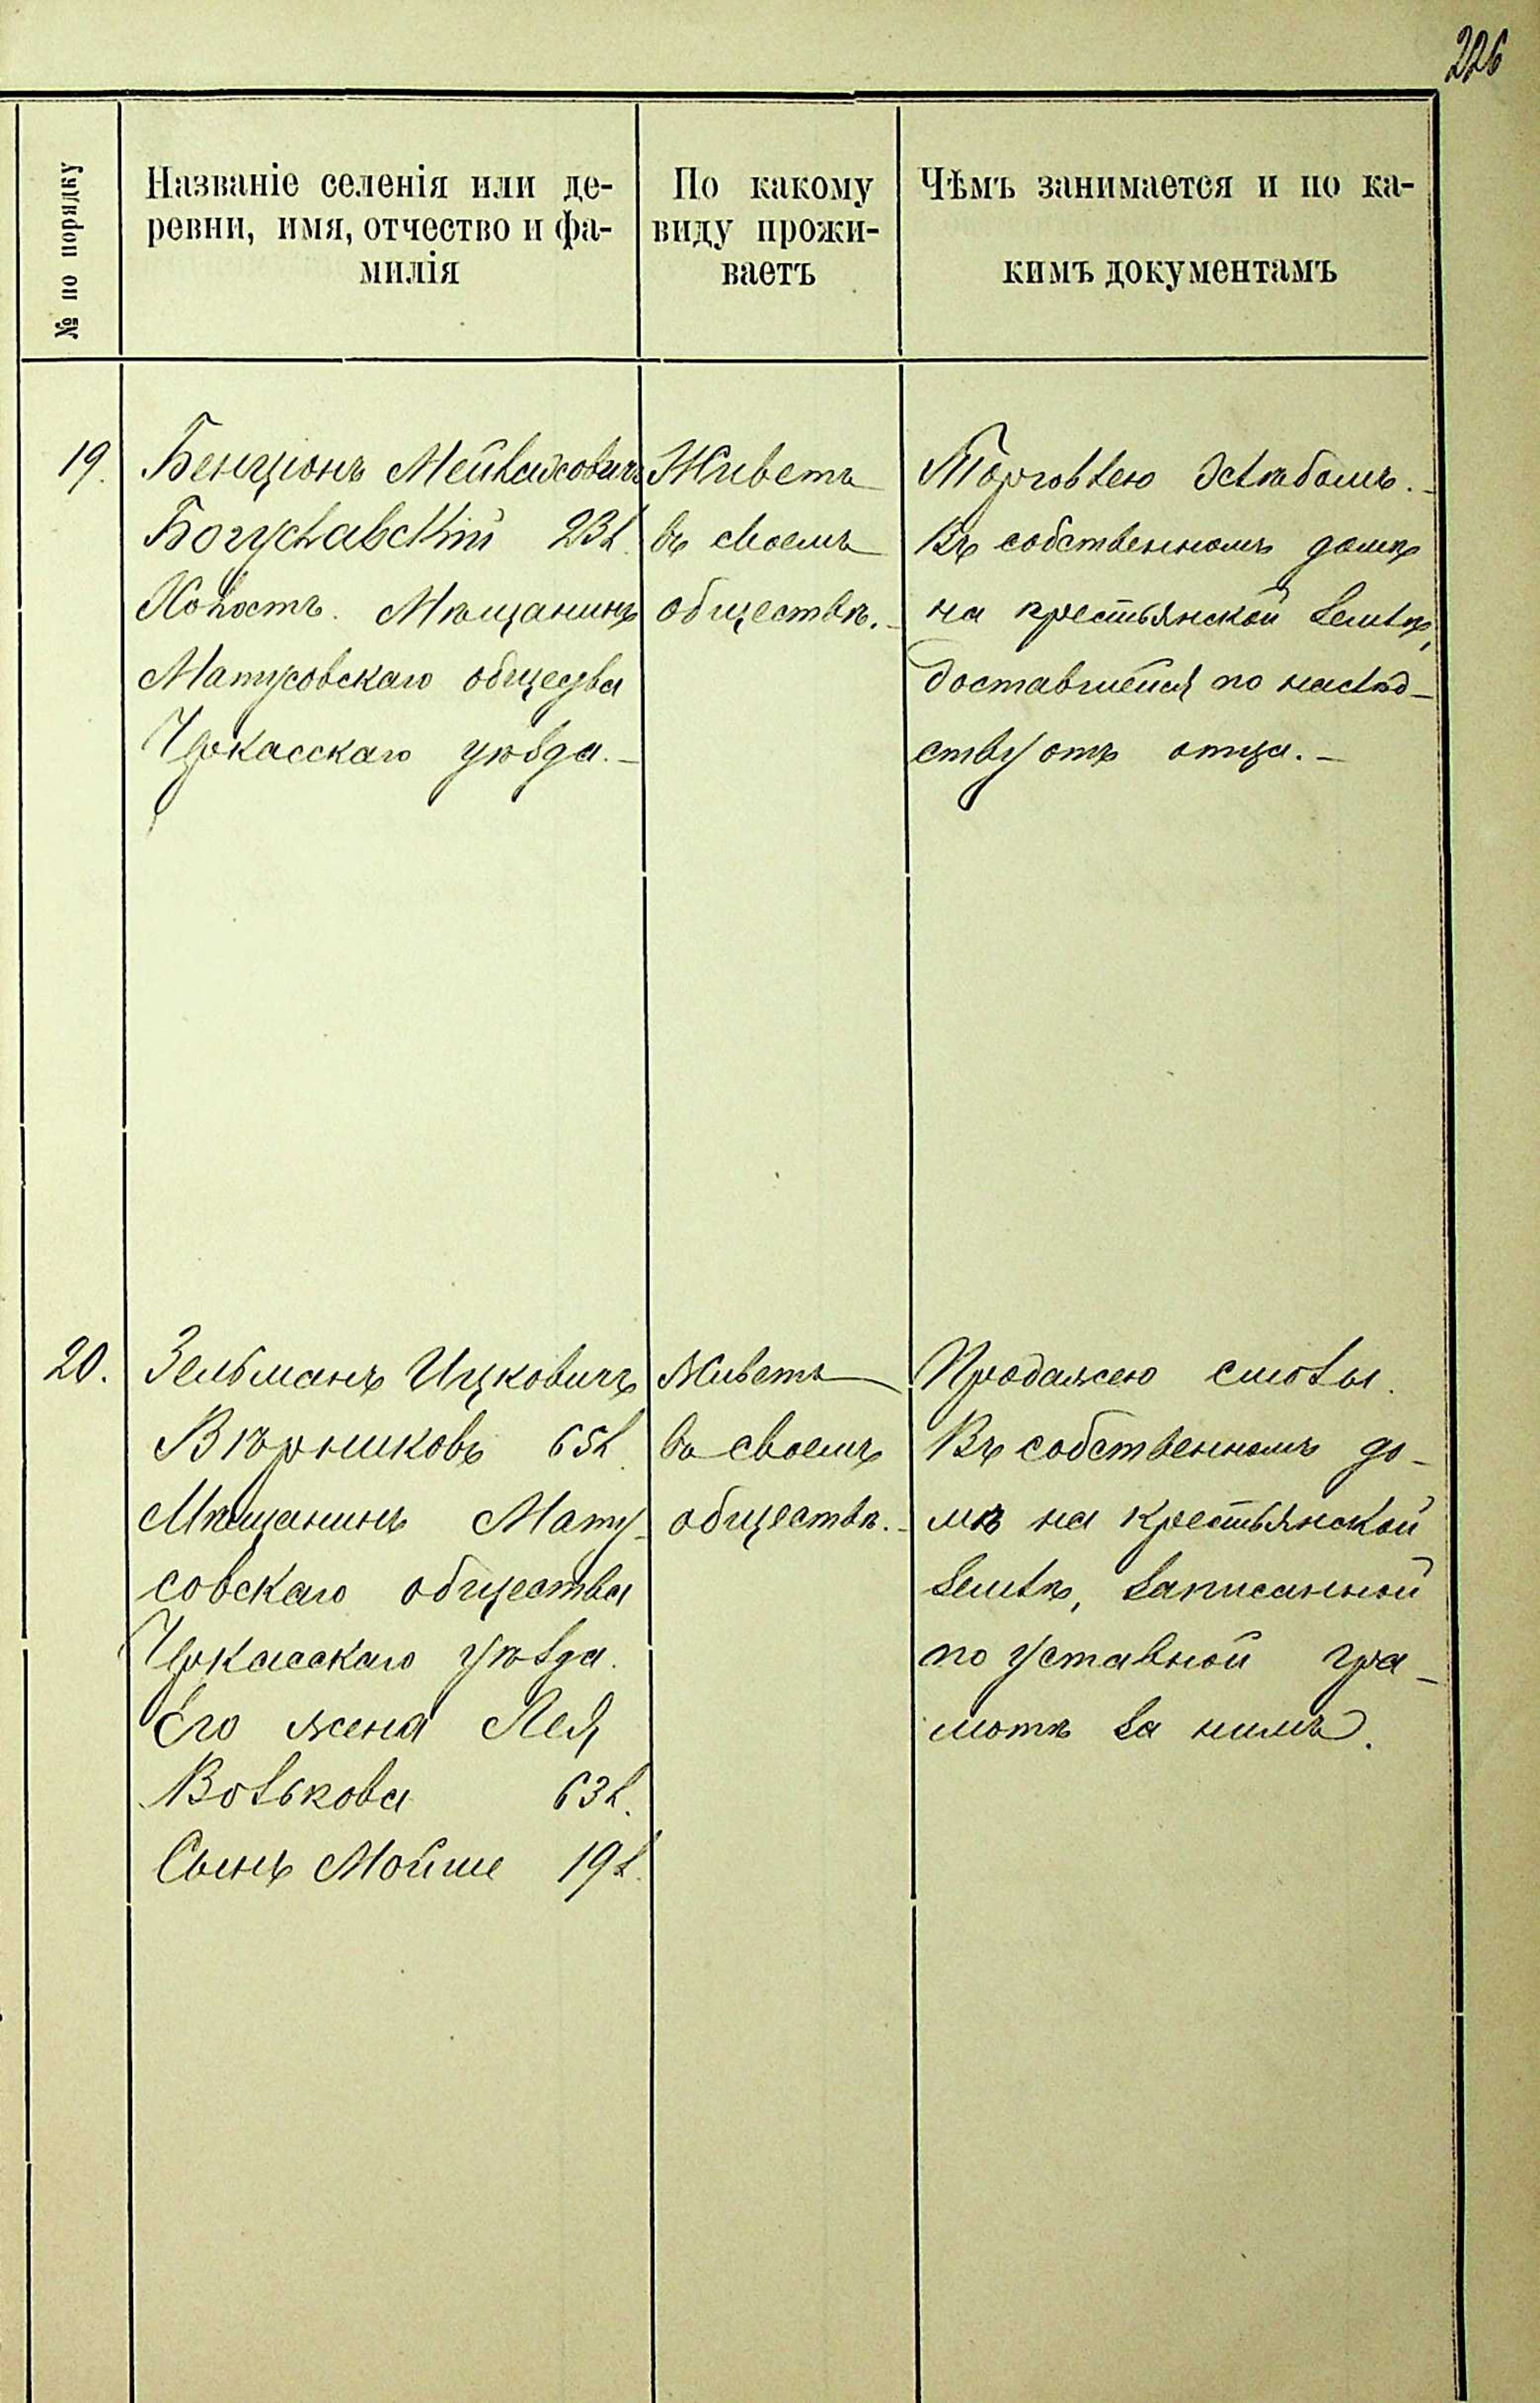 226
№ по порядку
Названіе селенія или де-
ревни, имя, отчество и фа-
милія
По какому
виду прожи-
ваетъ
Чѣмъ занимается и по ка-
кимъ документамъ
19.
Бенціонъ
Богуславскій 23 л.
Холостъ. Мѣщанинъ
Матусовскаго общества
Черкасскаго уѣзда. –
Живетъ
въ своемъ
обществѣ. –
Торговлею хлѣбомъ. –
Въ собственномъ домѣ
на крестьянской землѣ,
доставшейся по наслѣд–
ству отъ отца. –
20.
Зельманъ Ицковичъ
Вѣрниковъ 65 л.
Мѣщанинъ Мату–
совскаго общества
Черкасскаго уѣзда.
Его жена Лея
Волькова 63 л.
Сынъ Мойше 19 л.
Живетъ
въ своемъ
обществѣ. –
Продажею смолы.
Въ собственномъ до–
мѣ на крестьянской
землѣ, записанной
по уставной гра–
мотѣ за нимъ.